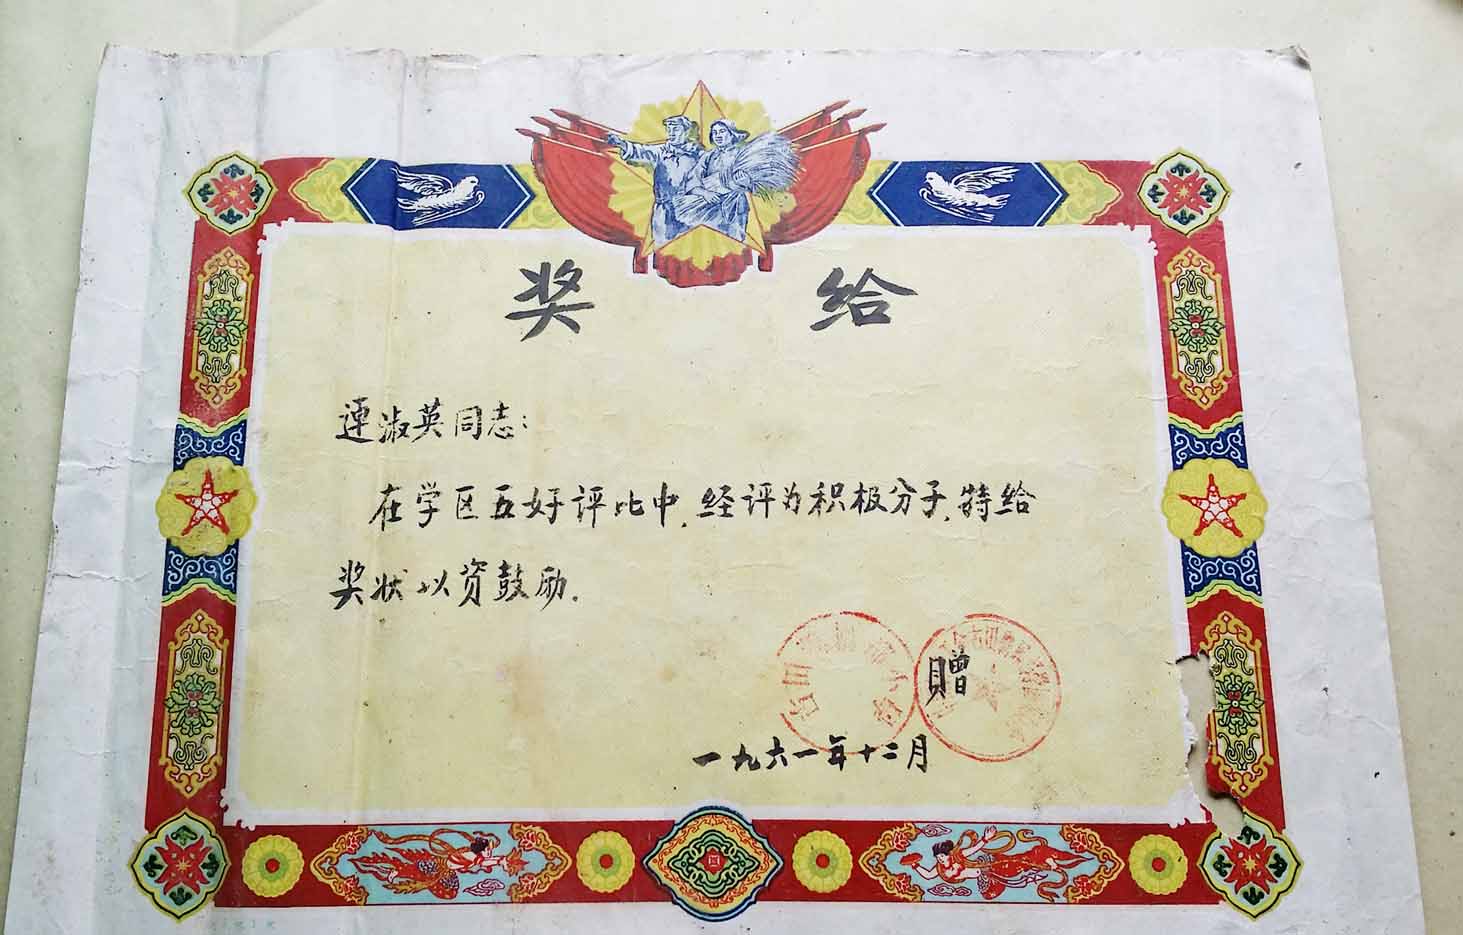 奖 给
連淑英同志:
在学区五好评比中,经评为积极分子,特给
奖状以资鼓励.
贈
一九六一年十二月